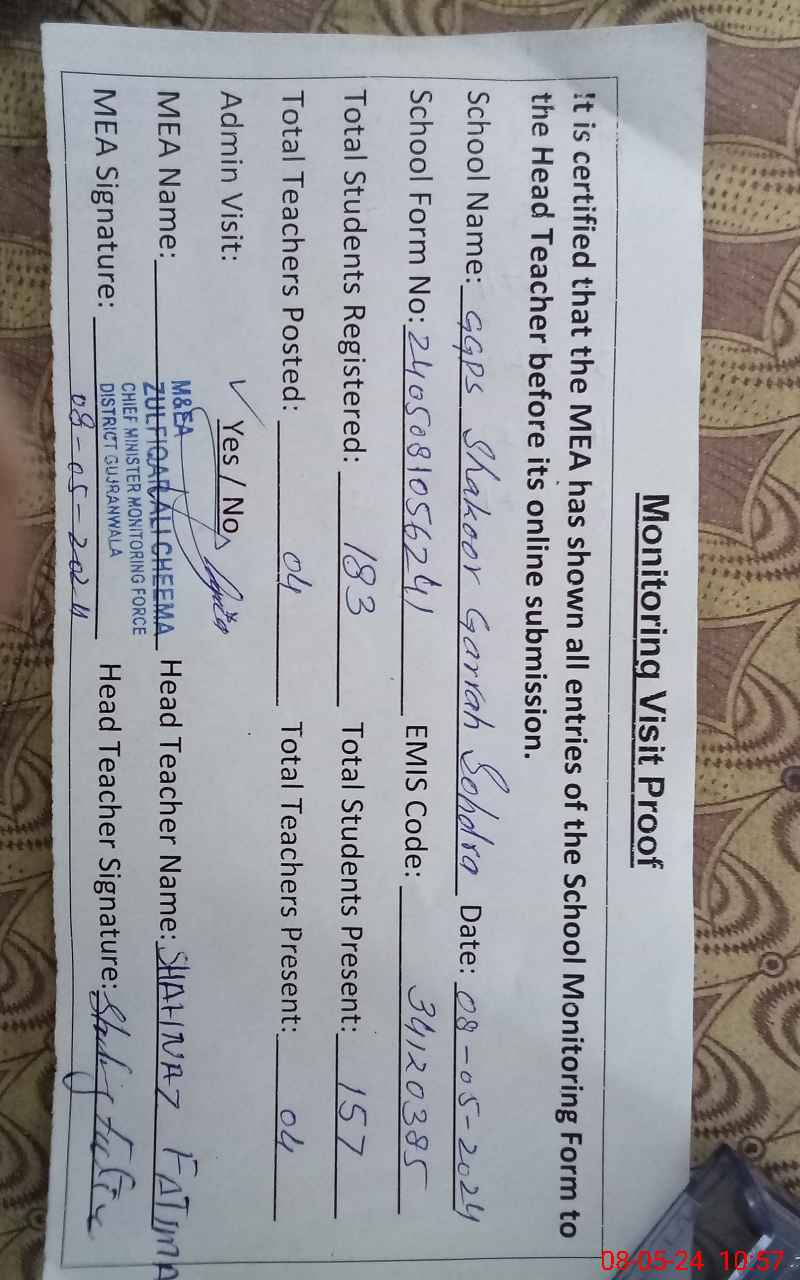 Monitoring Visit Proof
It is certified that the MEA has shown all entries of the School Monitoring Form to
the Head Teacher before its online submission.
School Name: GGPS Shakoor Garrah Sohdra Date: 08-05-2024
School Form No: 2405081056241 EMIS Code: 34120385
Total Students Registered: 183 Total Students Present: 157
Total Teachers Posted: 04 Total Teachers Present: 04
Admin Visit: ✓ Yes / No
MEA Name: M&EA
ZULFIQAR ALI CHEEMA Head Teacher Name: SHAHNAZ FATIMA
CHIEF MINISTER MONITORING FORCE
DISTRICT GUJRANWALA
MEA Signature: 08-05-2024 Head Teacher Signature:
08-05-24 10:57